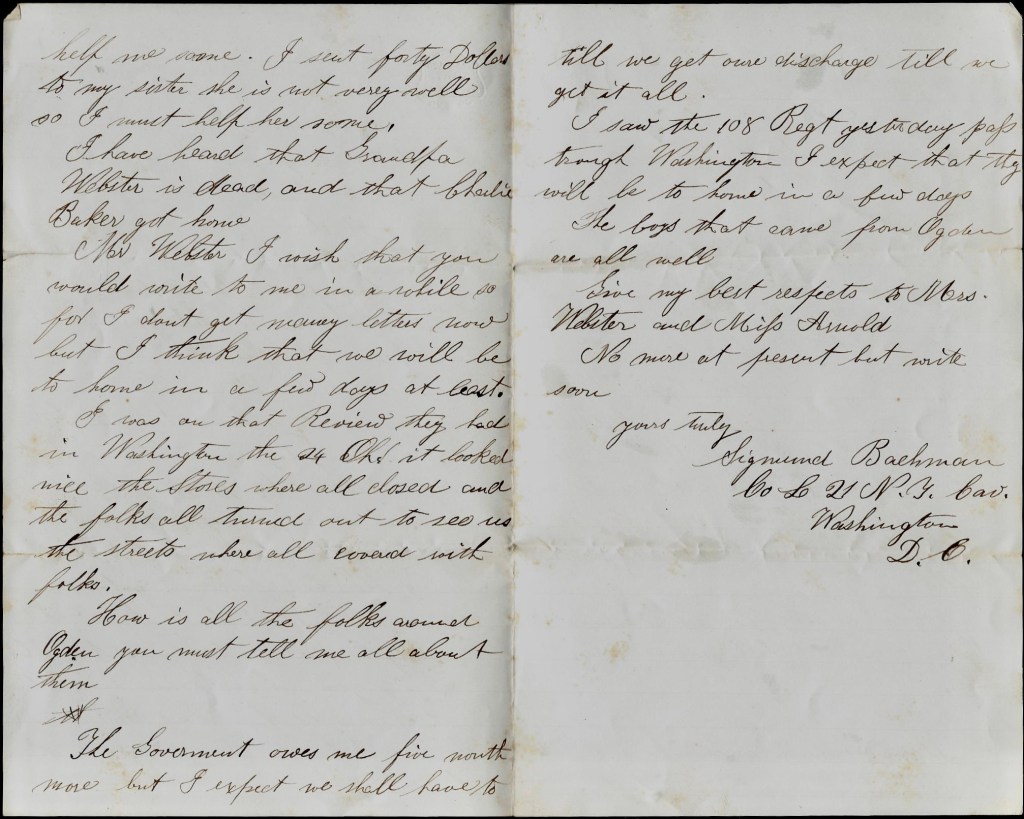 help me some. I sent forty Dollars
to my sister she is not verey well
so I must help her some.
I have heard that Grandpa
Webster is dead, and that Charlie
Baker got home
Mr Webster I wish that you
would write to me in a while so
for I dont get maney letters now
but I think that we will be
to home in a few days at least.
I was on that Review they had
in Washington the 24 it looked
nice the Stores where all closed and
the folks all turned out to see us
the streets where all coverd with
folks.
How is all the folks around
Ogden you must tell me all about
them
The Goverment owes me five month
more but I expect we shall have to
till we get oure discharge till we
get it all.
I saw the 108 Regt yesterday pass
trough Washington I expect that they
will be to home in a few days
The boys that came from Ogden
are all well
Give my best respects to Mrs.
Webster and Miss Arnold
No more at present but write
soon
yours truly
Sigmund Bachman
Co L 21 N.Y. Cav.
Washington
D. C.